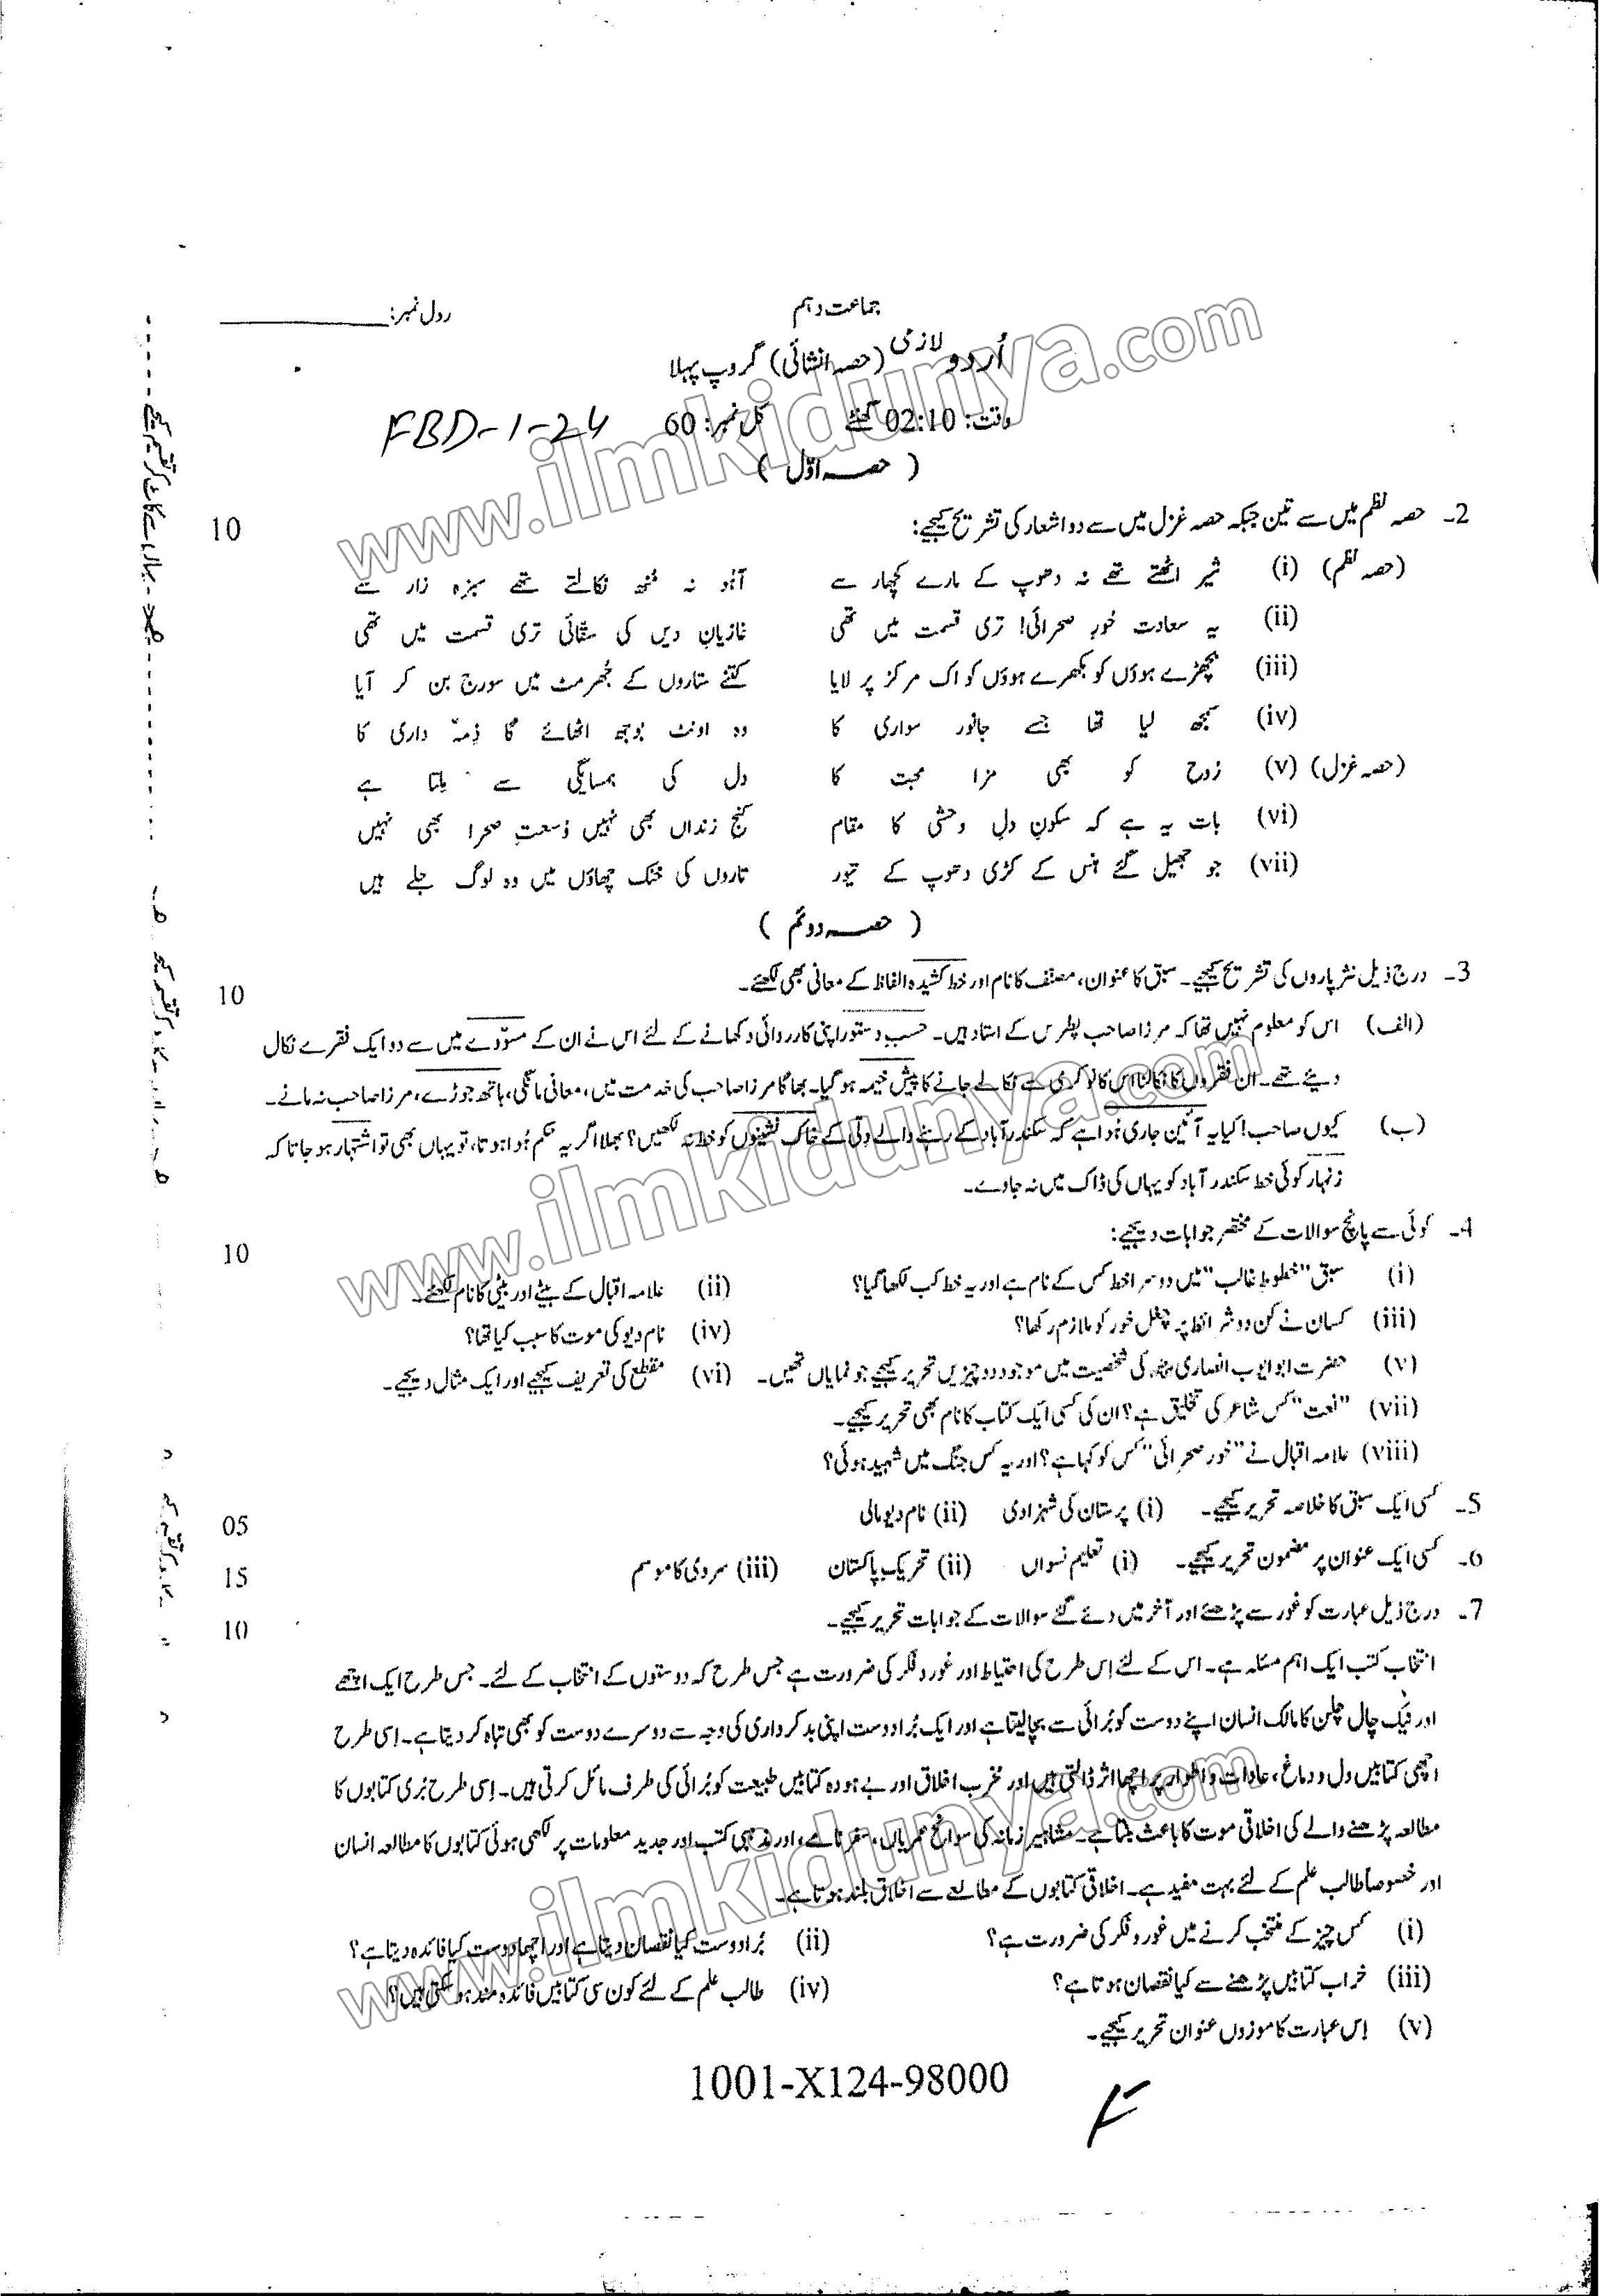 جماعت دہم
رول نمبر: ____________
اُردو لازمی (حصہ انشائی) گروپ پہلا
وقت: 02:10 گھنٹے کل نمبر: 60
FBD-1-24
( حصہ اوّل )
2۔ حصہ نظم میں سے تین جبکہ حصہ غزل میں سے دو اشعار کی تشریح کیجیے: 10
(حصہ نظم) (i) شیر اٹھتے تھے نہ دھوپ کے مارے کچھار سے آہُو نہ مُنھ نکالتے تھے سبزہ زار سے
(ii) یہ سعادت حُورِ صحرائی! تری قسمت میں تھی غازیانِ دیں کی سقّائی تری قسمت میں تھی
(iii) بچھڑے ہوؤں کو بکھرے ہوؤں کو اک مرکز پر لایا کتنے ستاروں کے جُھرمٹ میں سورج بن کر آیا
(iv) سمجھ لیا تھا جسے جانور سواری کا وہ اونٹ بوجھ اٹھائے گا ذِمّہ داری کا
(حصہ غزل) (v) رُوح کو بھی مزا محبت کا دل کی ہمسایگی سے ملتا ہے
(vi) بات یہ ہے کہ سکونِ دلِ وحشی کا مقام کنج زنداں بھی نہیں وُسعتِ صحرا بھی نہیں
(vii) جو جھیل گئے ہنس کے کڑی دھوپ کے تیور تاروں کی خنک چھاؤں میں وہ لوگ جلے ہیں
( حصہ دوئم )
3۔ درج ذیل نثر پاروں کی تشریح کیجیے۔ سبق کا عنوان، مصنف کا نام اور خط کشیدہ الفاظ کے معانی بھی لکھئے۔ 10
(الف) اس کو معلوم نہیں تھا کہ مرزا صاحب پطرس کے استاد ہیں۔ حسبِ دستور اپنی کارروائی دکھانے کے لئے اس نے ان کے مسوّدے میں سے دو ایک فقرے نکال
دیئے تھے۔ ان فقروں کا نکالنا اس کا نوکری سے نکالے جانے کا پیش خیمہ ہو گیا۔ بھاگا مرزا صاحب کی خدمت میں، معافی مانگی، ہاتھ جوڑے، مرزا صاحب نہ مانے۔
(ب) کیوں صاحب! کیا یہ آئین جاری ہُوا ہے کہ سکندر آباد کے رہنے والے دِلّی کے خاک نشینوں کو خط نہ لکھیں؟ بھلا اگر یہ حکم ہُوا ہوتا، تو یہاں بھی تو اشتہار ہو جاتا کہ
زنہار کوئی خط سکندر آباد کو یہاں کی ڈاک میں نہ جاوے۔
4۔ کوئی سے پانچ سوالات کے مختصر جوابات دیجیے: 10
(i) سبق "خطوطِ غالب" میں دوسرا خط کس کے نام ہے اور یہ خط کب لکھا گیا؟ (ii) علامہ اقبال کے بیٹے اور بیٹی کا نام لکھئے۔
(iii) کسان نے کن دو شرائط پر چغل خور کو ملازم رکھا؟ (iv) نام دیو کی موت کا سبب کیا تھا؟
(v) حضرت ابو ایوب انصاریؓ کی شخصیت میں موجود دو چیزیں تحریر کیجیے جو نمایاں تھیں۔ (vi) مقطع کی تعریف کیجیے اور ایک مثال دیجیے۔
(vii) "نعت" کس شاعر کی تخلیق ہے؟ ان کی کسی ایک کتاب کا نام بھی تحریر کیجیے۔
(viii) علامہ اقبال نے "حُور صحرائی" کس کو کہا ہے؟ اور یہ کس جنگ میں شہید ہوئی؟
5۔ کسی ایک سبق کا خلاصہ تحریر کیجیے۔ (i) پرستان کی شہزادی (ii) نام دیو مالی 05
6۔ کسی ایک عنوان پر مضمون تحریر کیجیے۔ (i) تعلیم نسواں (ii) تحریکِ پاکستان (iii) سردی کا موسم 15
7۔ درج ذیل عبارت کو غور سے پڑھئے اور آخر میں دئے گئے سوالات کے جوابات تحریر کیجیے۔ 10
انتخابِ کتب ایک اہم مسئلہ ہے۔ اس کے لئے اِس طرح کی احتیاط اور غور و فکر کی ضرورت ہے جس طرح کہ دوستوں کے انتخاب کے لئے۔ جس طرح ایک اچھے
اور نیک چال چلن کا مالک انسان اپنے دوست کو بُرائی سے بچا لیتا ہے اور ایک بُرا دوست اپنی بدکرداری کی وجہ سے دوسرے دوست کو بھی تباہ کر دیتا ہے۔ اِسی طرح
اچھی کتابیں دل و دماغ، عادات و اطوار پر اچھا اثر ڈالتی ہیں اور مخربِ اخلاق اور بے ہودہ کتابیں طبیعت کو بُرائی کی طرف مائل کرتی ہیں۔ اِسی طرح بُری کتابوں کا
مطالعہ پڑھنے والے کی اخلاقی موت کا باعث بنتا ہے۔ مشاہیرِ زمانہ کی سوانح عمریاں، سفر نامے، اور مذہبی کتب اور جدید معلومات پر لکھی ہوئی کتابوں کا مطالعہ انسان
اور خصوصاً طالب علم کے لئے بہت مفید ہے۔ اخلاقی کتابوں کے مطالعے سے اخلاق بلند ہوتا ہے۔
(i) کس چیز کے منتخب کرنے میں غور و فکر کی ضرورت ہے؟ (ii) بُرا دوست کیا نقصان دیتا ہے اور اچھا دوست کیا فائدہ دیتا ہے؟
(iii) خراب کتابیں پڑھنے سے کیا نقصان ہوتا ہے؟ (iv) طالب علم کے لئے کون سی کتابیں فائدہ مند ہو سکتی ہیں؟
(v) اِس عبارت کا موزوں عنوان تحریر کیجیے۔
1001-X124-98000
www.ilmkidunya.com
www.ilmkidunya.com
www.ilmkidunya.com